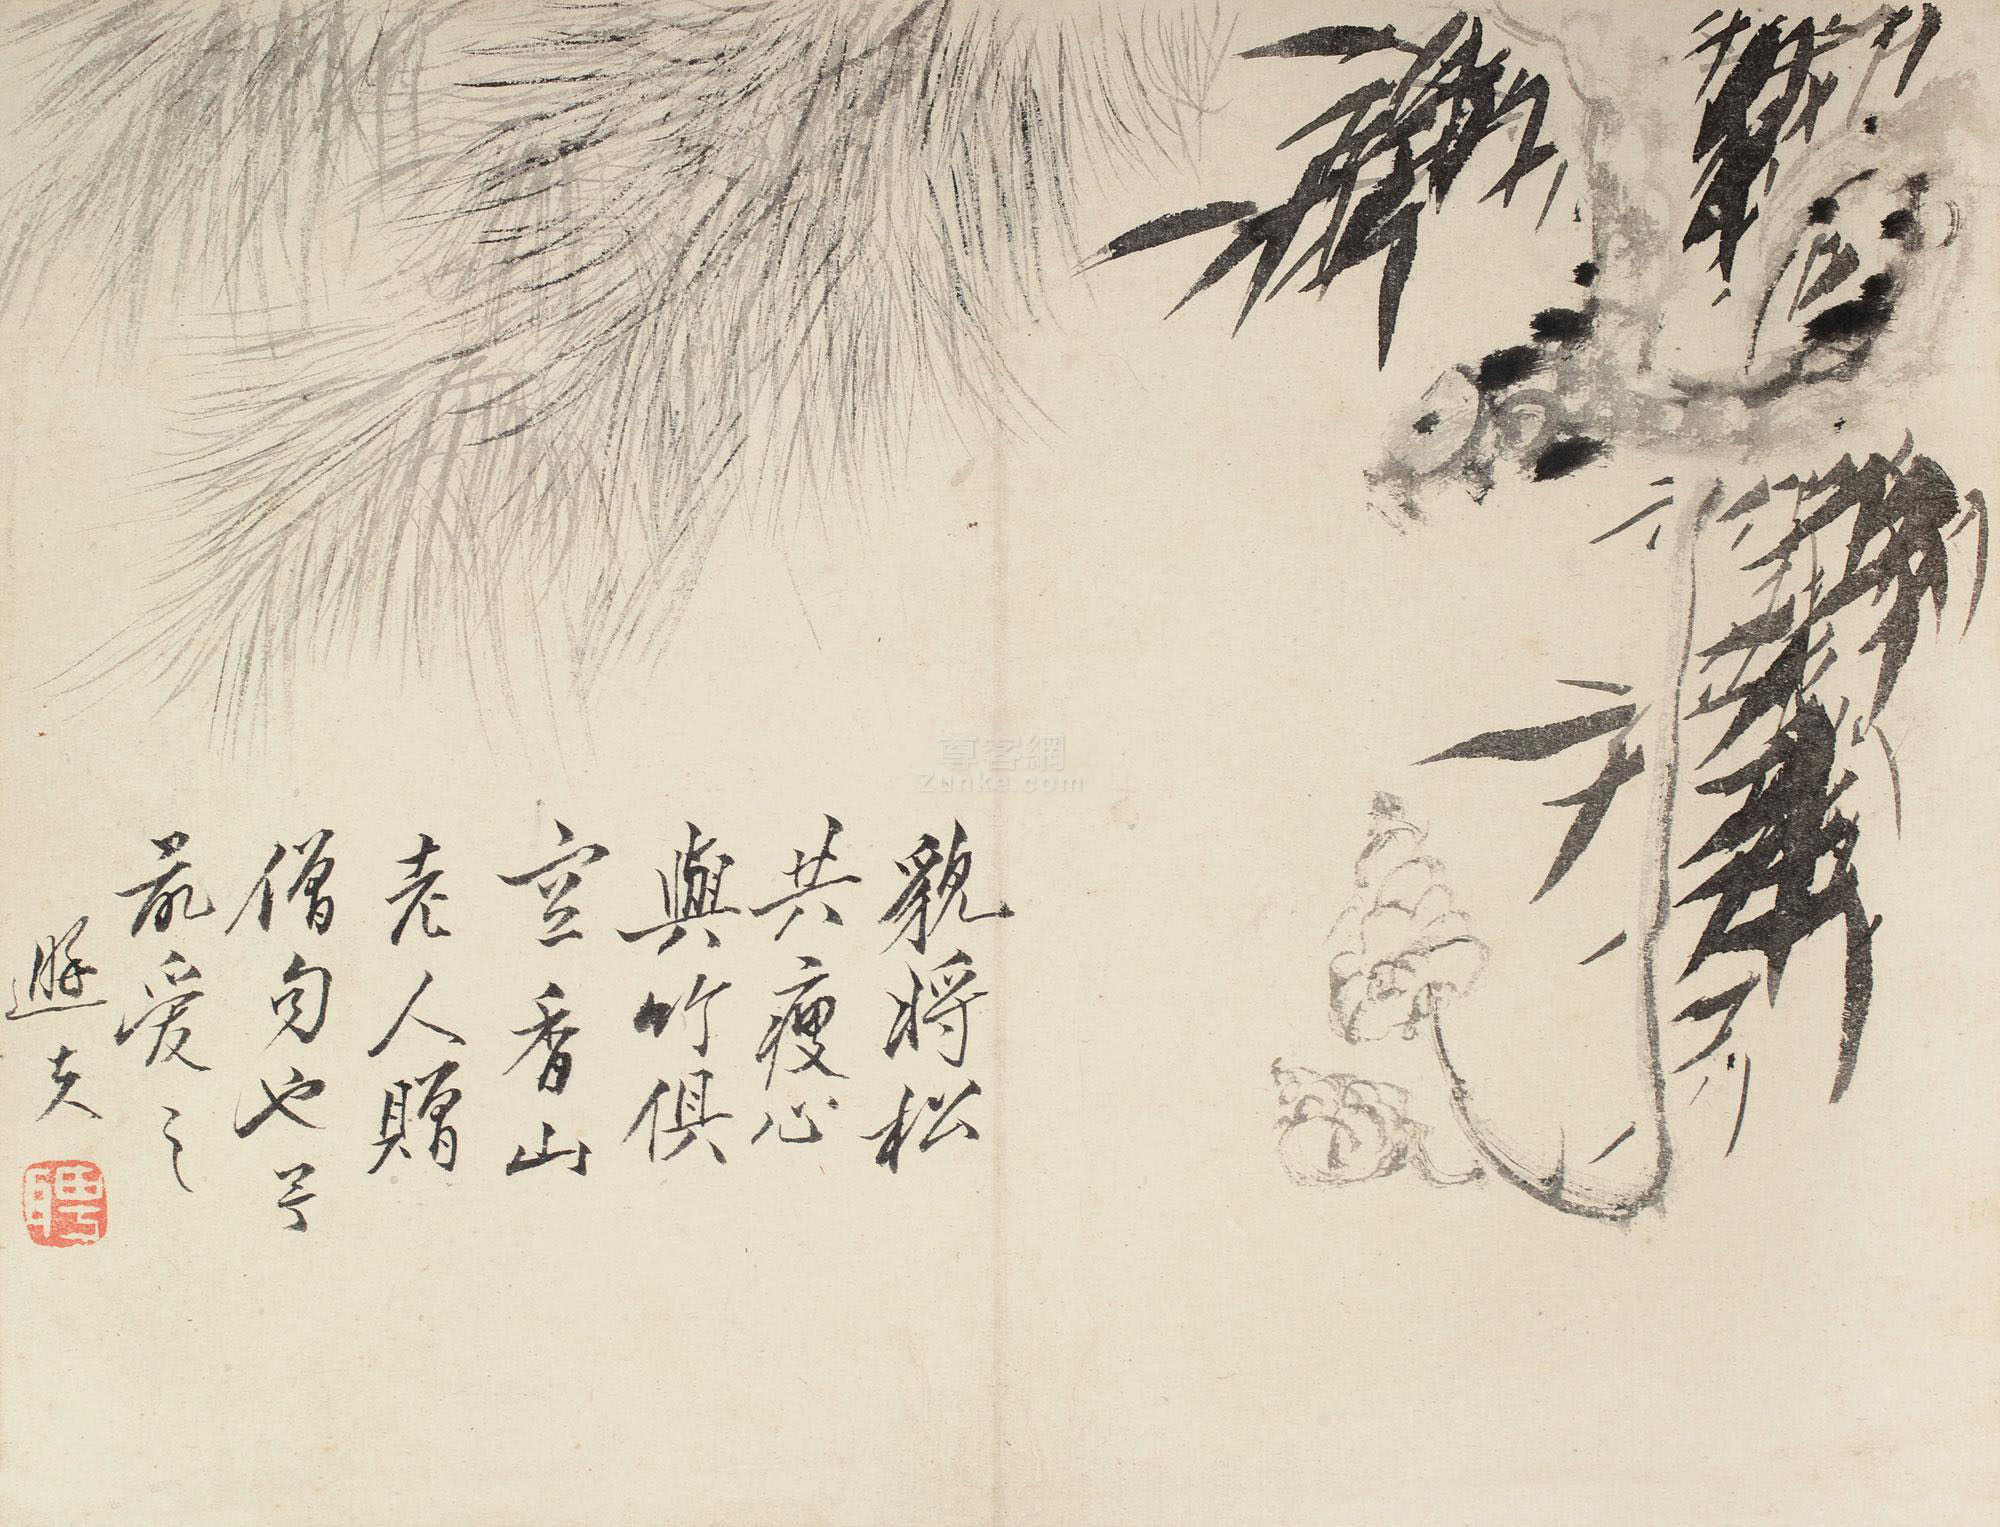 貌将松
共瘦心
與竹俱
空香山
老人贈
僧句也
最爱之
遯夫
聘
尊客網
Zunke.com